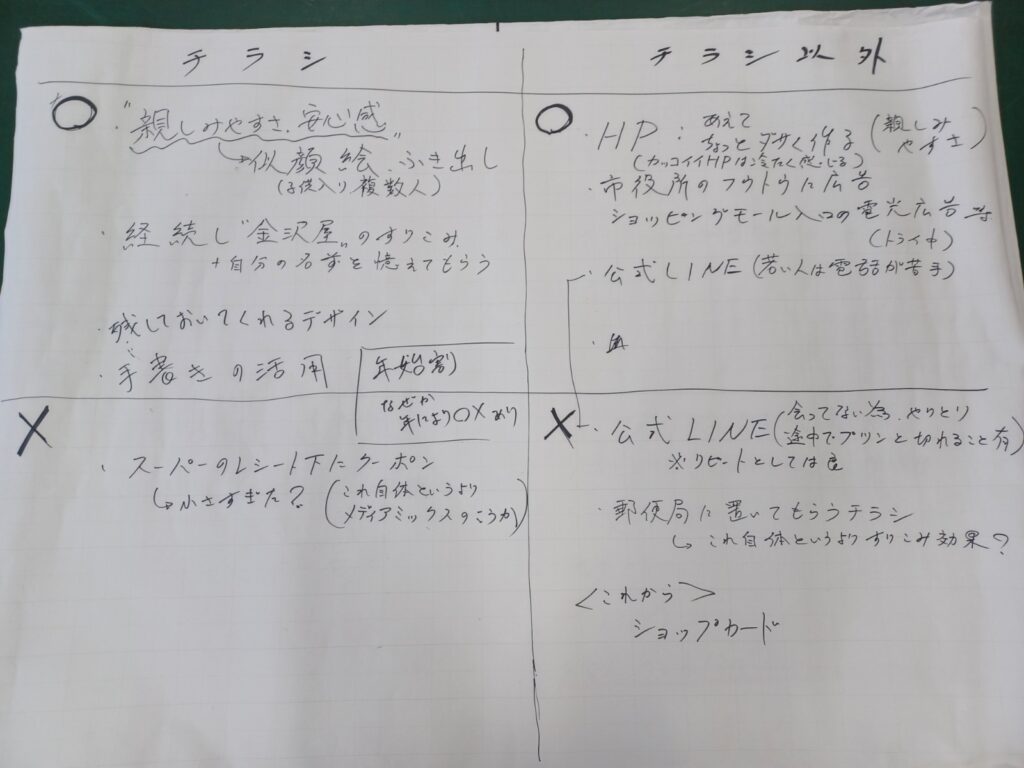 チラシ
○
・"親しみやすさ、安心感"
→似顔絵、ふき出し
(子供入り複数人)
・経続し"金沢屋"のすりこみ
+自分の名前を憶えてもらう
・残しておいてくれるデザイン
・手書きの活用
年始割
なぜか
年により○×あり
×
・スーパーのレシート下にクーポン
→小さすぎた?
(これ自体というより
メディアミックスのこうか)
チラシ以外
○
・HP:あえて
ちょっとダサく作る
(親しみ
やすさ)
(カッコイイHPは冷たく感じる)
・市役所のフウトウに広告
ショッピングモール入口の電光広告等
(トライ中)
・公式LINE(若い人は電話が苦手)
・
×
・公式LINE(会ってない為、やりとり
途中でプツンと切れること有)
※リピートとしては良
・郵便局に置いてもらうチラシ
→これ自体というよりすりこみ効果?
<これから>
ショップカード